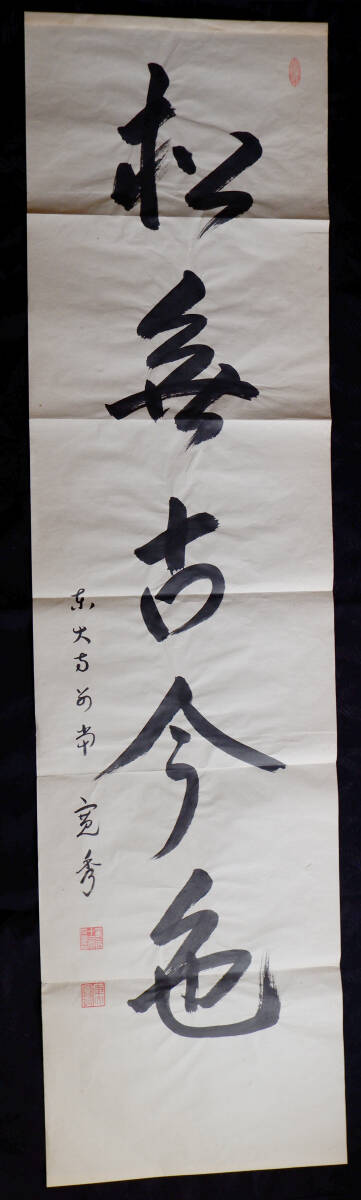 松無古今色
東大寺別当 寛秀